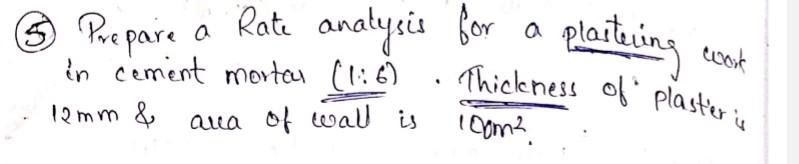 ⑤ Prepare a Rate analysis for a plastering work
in cement mortar (1:6). Thickness of plaster is
12mm & area of wall is 100m².